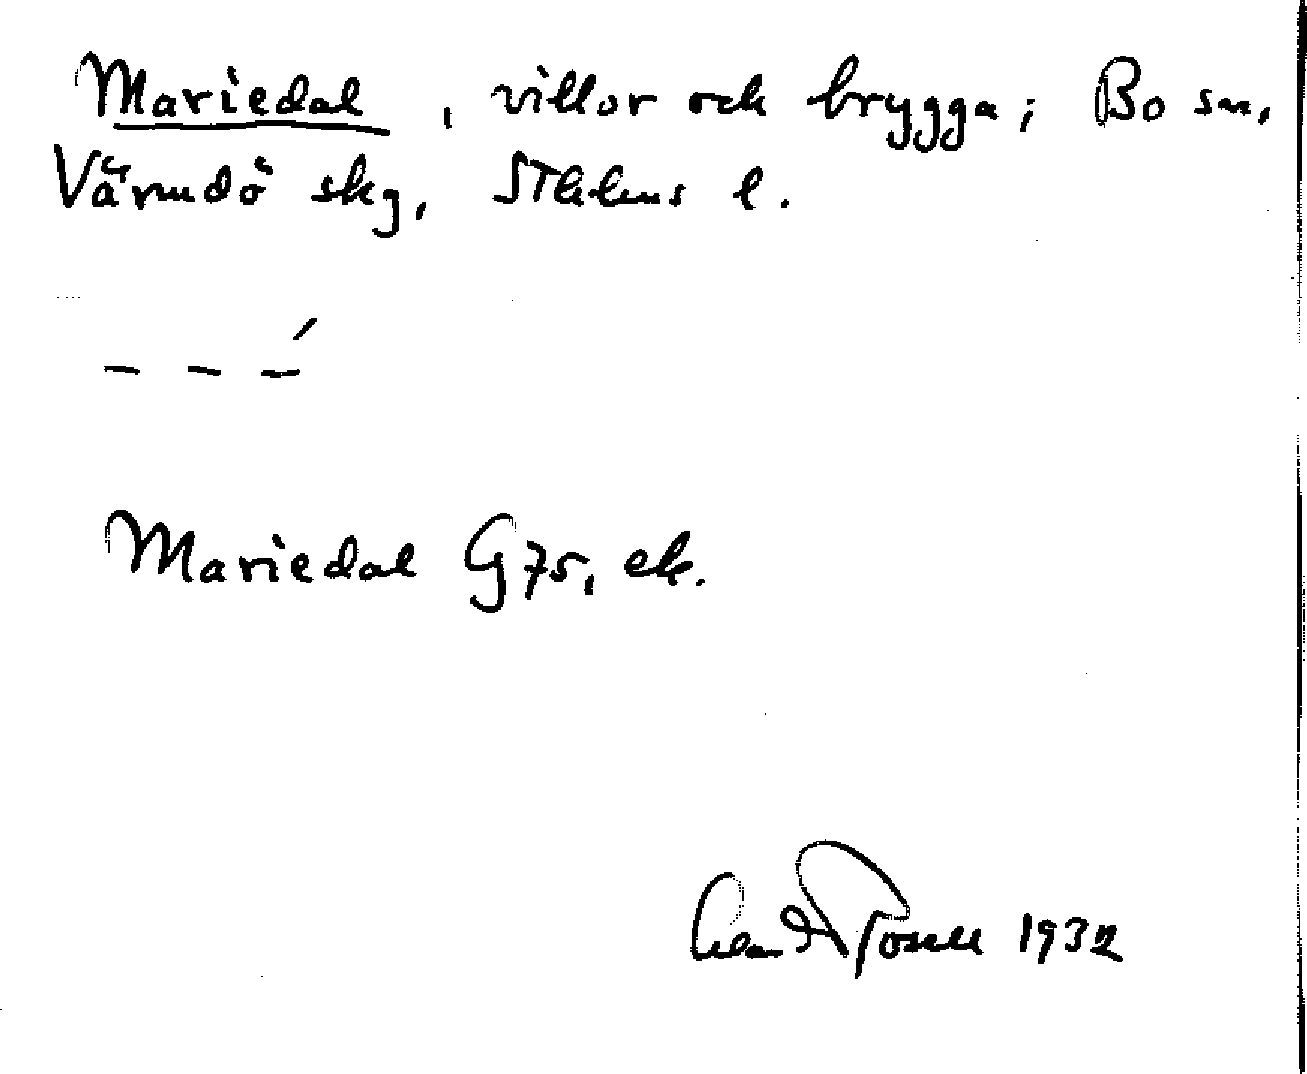 Mariedal, villor och brygga; Bo sn,
Värmdö skg, Sthlms l.
– – –́
Mariedal G75, ek.
1932